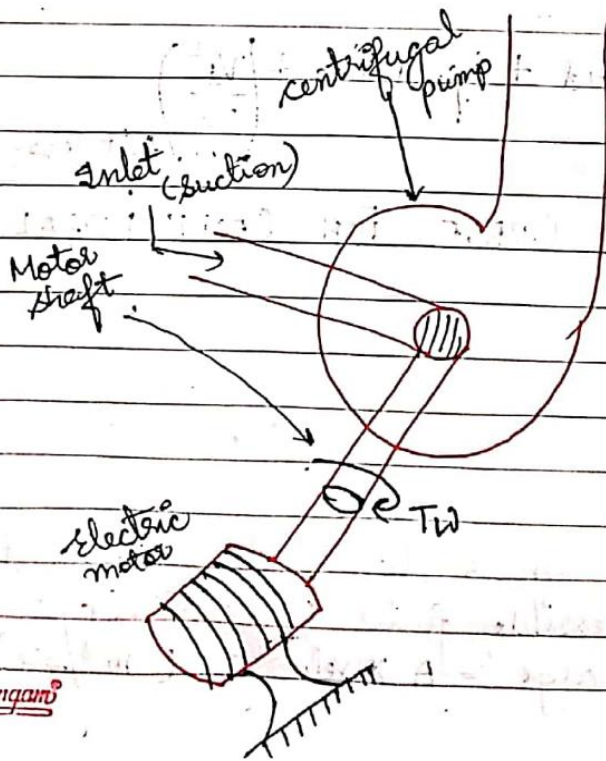 centrifugal
pump
Inlet
(suction)
Motor
shaft
Tω
Electric
motor